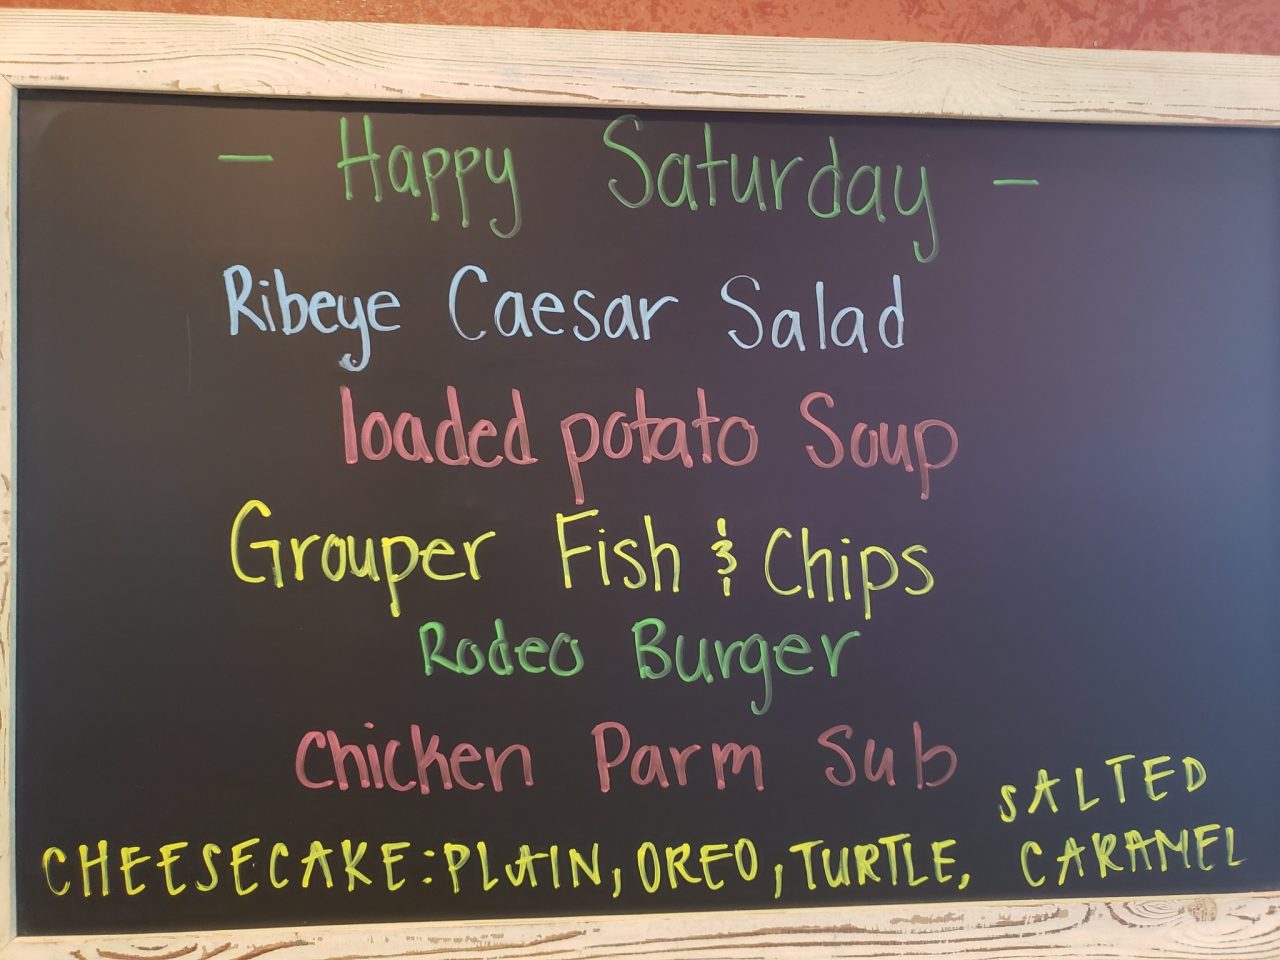 - Happy Saturday -
Ribeye Caesar Salad
loaded potato Soup
Grouper Fish & Chips
Rodeo Burger
Chicken Parm Sub
CHEESECAKE: PLAIN, OREO, TURTLE, SALTED
CARAMEL